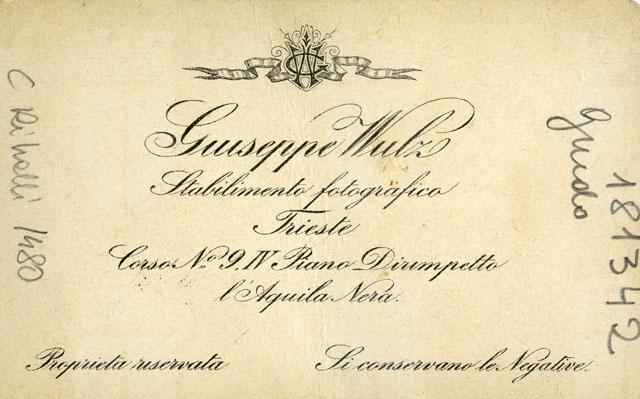 Giuseppe Wulz
Stabilimento fotografico
Trieste
Corso No. 9. IV Piano Dirimpetto
l'Aquila Nera.
Proprieta riservata
Si conservano le Negative.
1480
Guido
181342